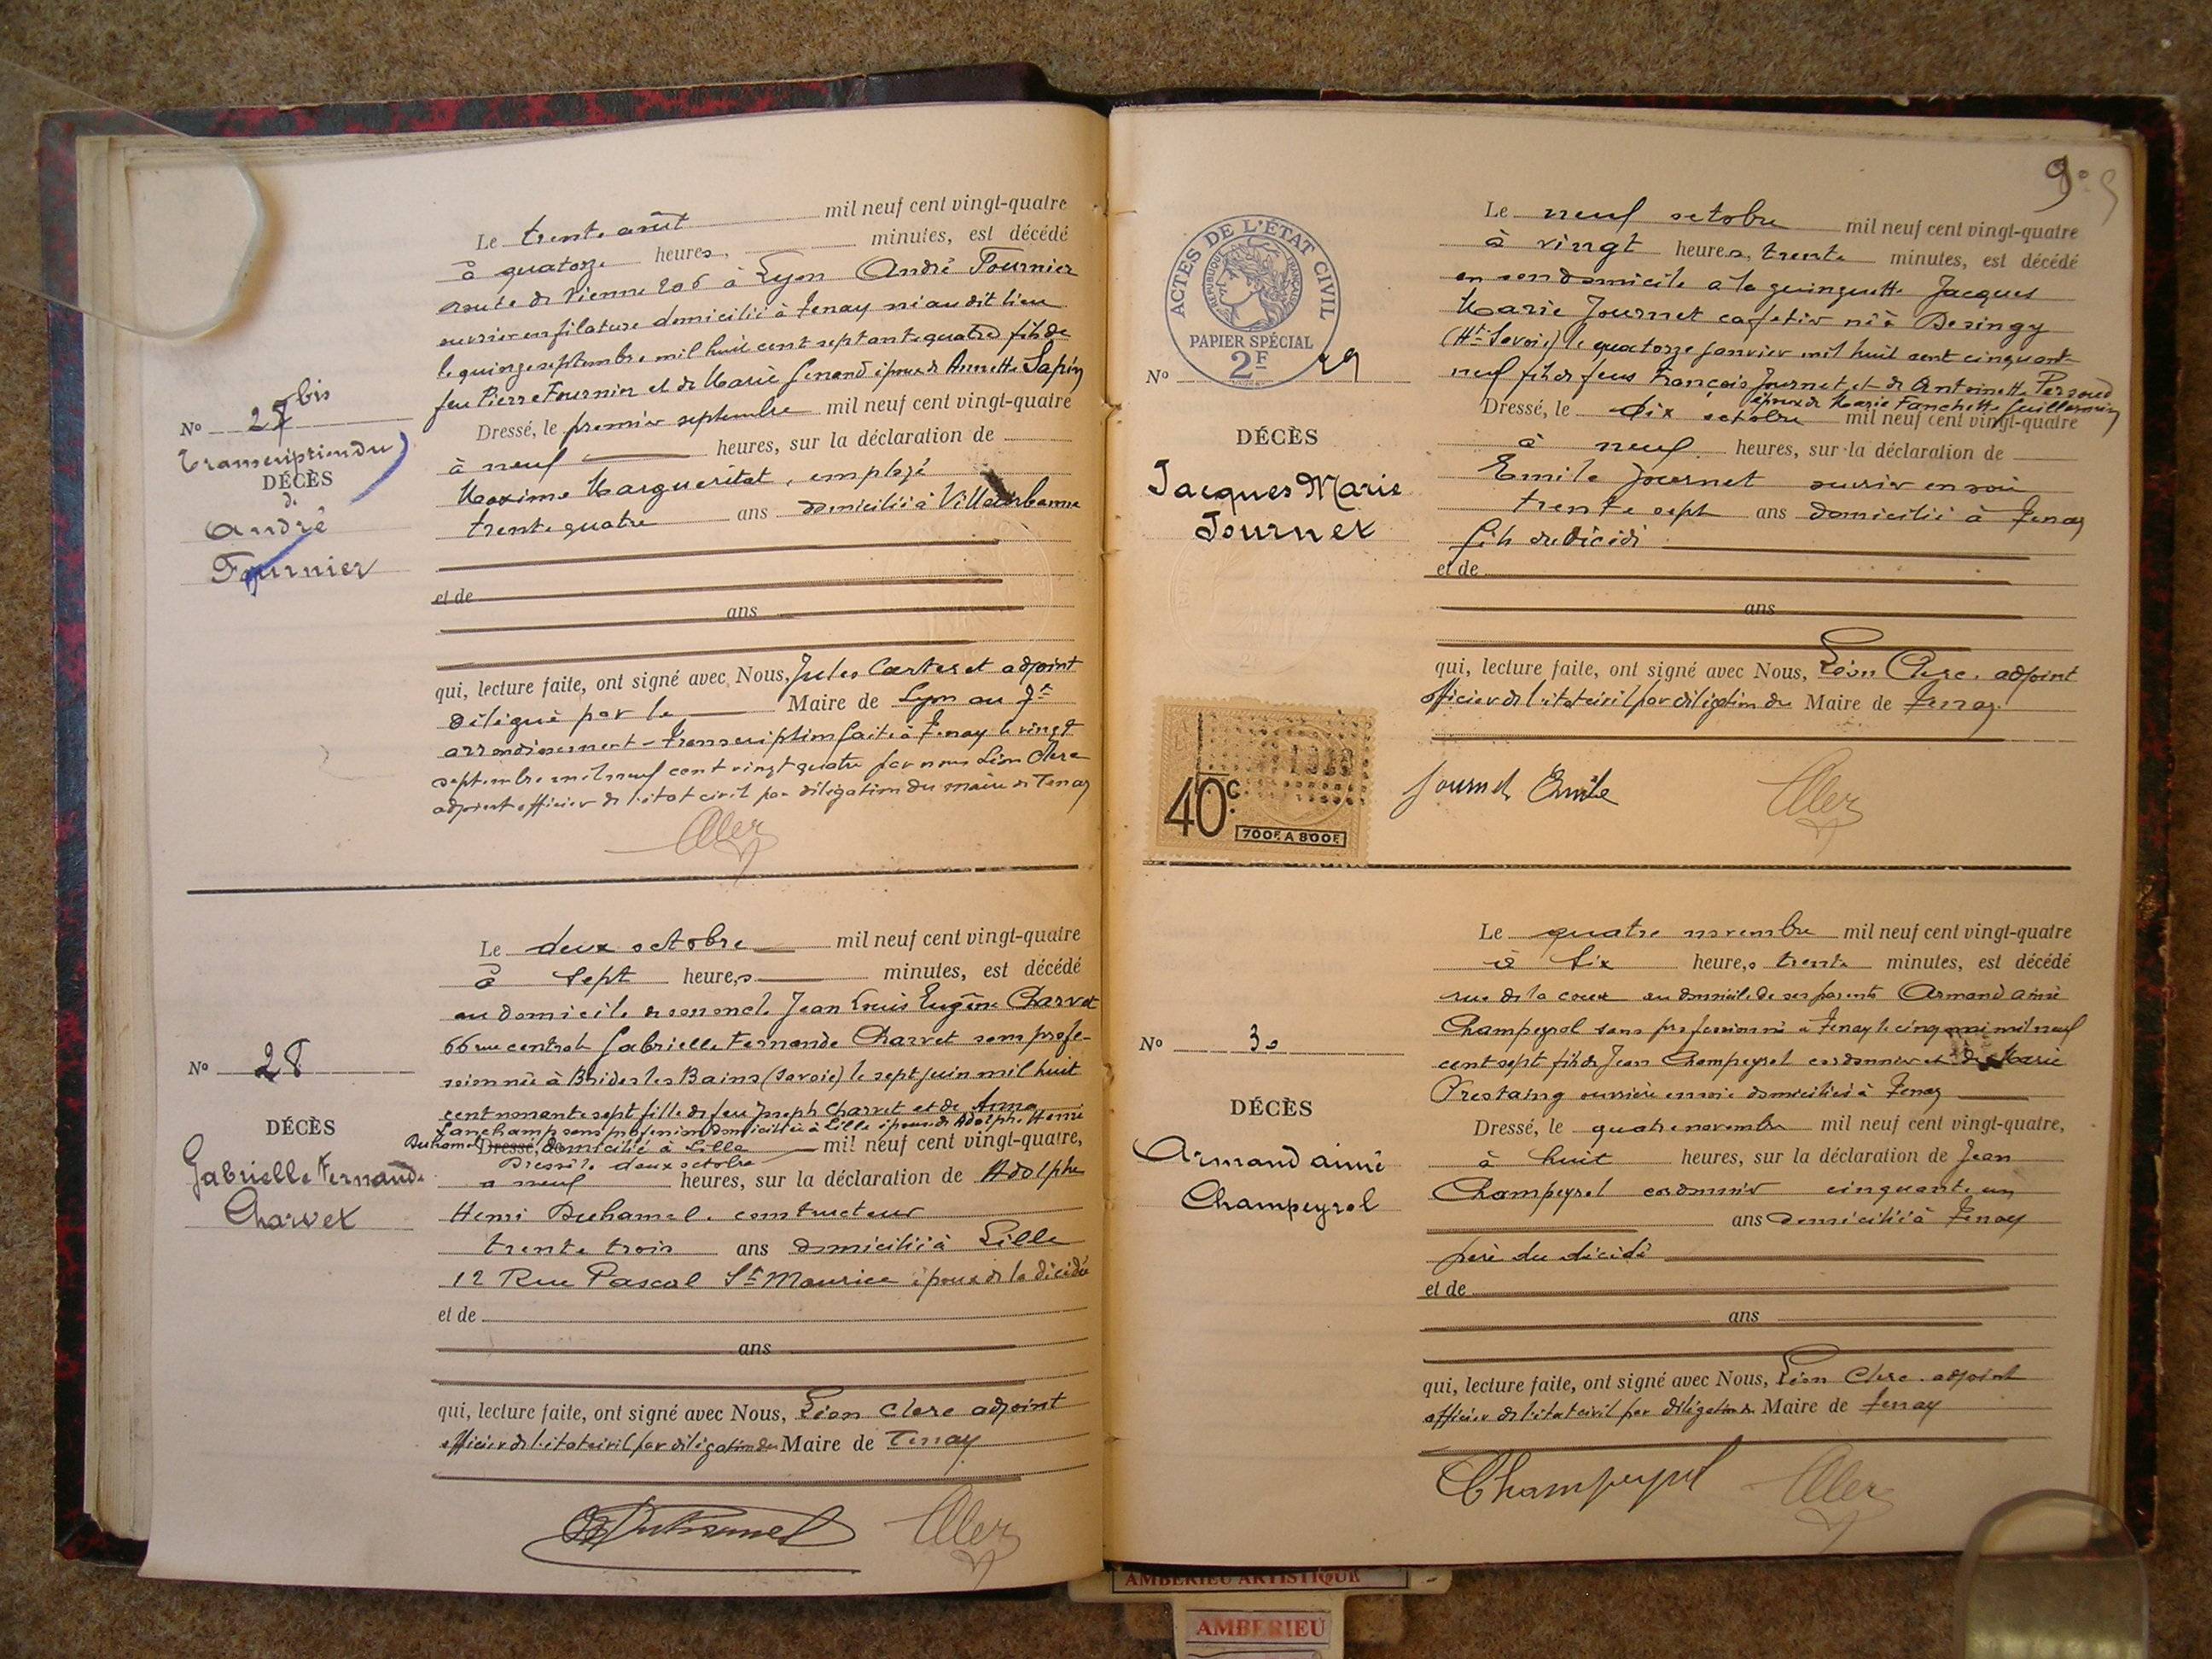 Le trente août mil neuf cent vingt-quatre
à quatorze heures, minutes, est décédé
route de Vienne 206 à Lyon André Fournier
ouvrier en filature domicilié à Tenay né au dit lieu
le quinze septembre mil huit cent septante quatre fils de
feu Pierre Fournier et de Marie Genand époux de Annette Sapin
Dressé, le premier septembre mil neuf cent vingt-quatre
à neuf heures, sur la déclaration de
Maxime Margueritat, employé
trente quatre ans domicilié à Villeurbanne
et de
ans
qui, lecture faite, ont signé avec Nous, Jules Carteret adjoint
délégué par le Maire de Lyon au 7e
arrondissement - transcription faite à Tenay le vingt
septembre mil neuf cent vingt quatre par nous Léon Clerc
adjoint officier de l'état civil par délégation du maire de Tenay
Clerc
No 27 bis
Transcription du
DÉCÈS
de
André
Fournier
Le deux octobre mil neuf cent vingt-quatre
à sept heures minutes, est décédé
au domicile de son oncle Jean Louis Eugène Charvet
66 rue centrale Gabrielle Fernande Charvet sans profes-
sion née à Brides les Bains (Savoie) le sept juin mil huit
cent nonante sept fille de feu Joseph Charvet et de Anna
Lanchamp sans profession domiciliée à Lille épouse de Adolphe Henri
Duhamel Dressé, domicilié à Lille mil neuf cent vingt-quatre,
Dressé le deux octobre
à neuf heures, sur la déclaration de Adolphe
Henri Duhamel. constructeur
trente trois ans domicilié à Lille
12 Rue Pascal St Maurice époux de la décédée
et de
ans
qui, lecture faite, ont signé avec Nous, Léon Clerc adjoint
officier de l'état civil par délégation du Maire de Tenay
Duhamel Clerc
No 28
DÉCÈS
Gabrielle Fernande
Charvet
9
ACTES DE L'ÉTAT CIVIL
RÉPUBLIQUE FRANÇAISE
PAPIER SPÉCIAL
2F
No 29
DÉCÈS
Jacques Marie
Journet
40c
700F. A 800F.
Le neuf octobre mil neuf cent vingt-quatre
à vingt heures, trente minutes, est décédé
en son domicile à la guinguette Jacques
Marie Journet cafetier né à Desingy
(Hte Savoie) le quatorze janvier mil huit cent cinquante
neuf fils de feus François Journet et de Antoinette Persoud
époux de Marie Fanchette Guillermin
Dressé, le dix octobre mil neuf cent vingt-quatre
à neuf heures, sur la déclaration de
Emile Journet ouvrier en soie
trente sept ans domicilié à Tenay
fils du décédé
et de
ans
qui, lecture faite, ont signé avec Nous, Léon Clerc. adjoint
officier de l'état civil par délégation du Maire de Tenay
Journet Emile Clerc
No 30
DÉCÈS
Armand aimé
Champeyrol
Le quatre novembre mil neuf cent vingt-quatre
à six heures trente minutes, est décédé
rue de la cour au domicile de ses parents Armand aimé
Champeyrol sans profession né à Tenay le cinq mai mil neuf
cent sept fils de Jean Champeyrol cordonnier et de Marie
Prestaing ouvrière en soie domiciliés à Tenay
Dressé, le quatre novembre mil neuf cent vingt-quatre,
à huit heures, sur la déclaration de Jean
Champeyrol cordonnier cinquante un
ans domicilié à Tenay
père du décédé
et de
ans
qui, lecture faite, ont signé avec Nous, Léon Clerc. adjoint
officier de l'état civil par délégation du Maire de Tenay
Champeyrol Clerc
AMBERIEU ARTISTIQUE
AMBERIEU